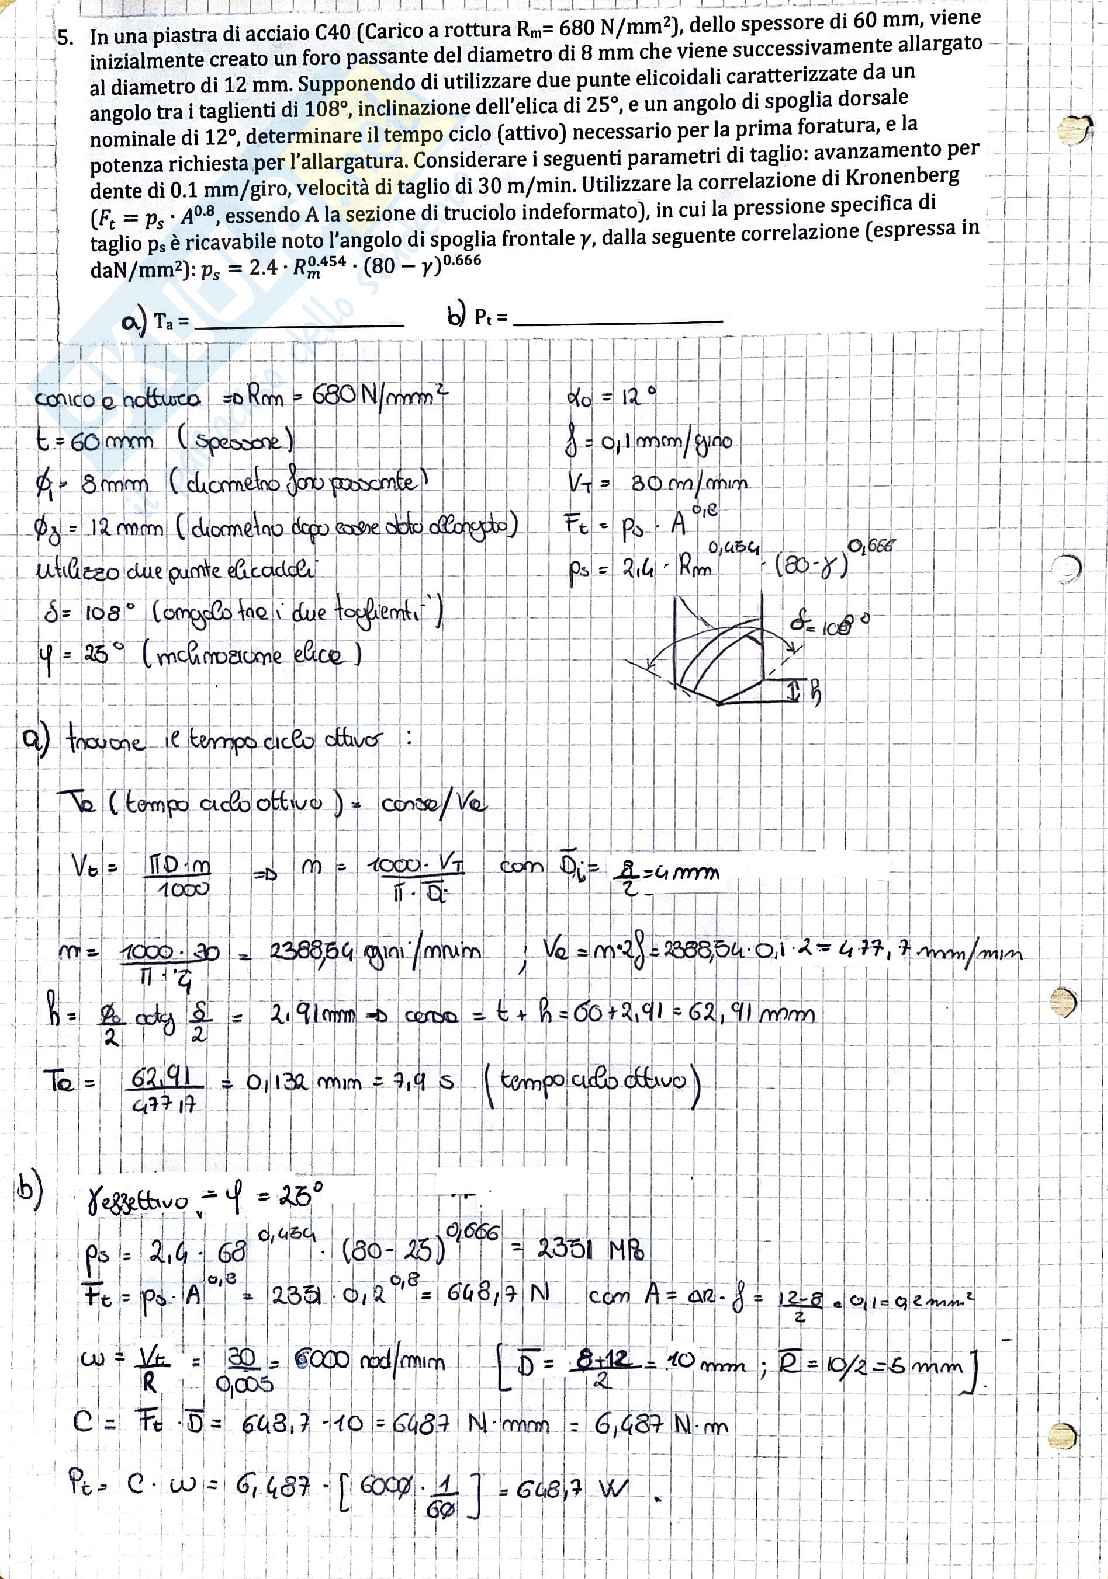 5. In una piastra di acciaio C40 (Carico a rottura Rm= 680 N/mm²), dello spessore di 60 mm, viene
inizialmente creato un foro passante del diametro di 8 mm che viene successivamente allargato
al diametro di 12 mm. Supponendo di utilizzare due punte elicoidali caratterizzate da un
angolo tra i taglienti di 108°, inclinazione dell'elica di 25°, e un angolo di spoglia dorsale
nominale di 12°, determinare il tempo ciclo (attivo) necessario per la prima foratura, e la
potenza richiesta per l'allargatura. Considerare i seguenti parametri di taglio: avanzamento per
dente di 0.1 mm/giro, velocità di taglio di 30 m/min. Utilizzare la correlazione di Kronenberg
(Ft = ps · A^0.8, essendo A la sezione di truciolo indeformato), in cui la pressione specifica di
taglio ps è ricavabile noto l'angolo di spoglia frontale γ, dalla seguente correlazione (espressa in
daN/mm²): ps = 2.4 · Rm^0.454 · (80 − γ)^0.666
a) Ta = ____________ b) Pt = ____________
carico a rottura => Rm = 680 N/mm² α0 = 12°
t = 60 mm (spessore) f = 0,1 mm/giro
ϕi = 8 mm (diametro foro passante) VT = 30 m/min
ϕf = 12 mm (diametro dopo essere stato allargato) Ft = ps · A^0,8
utilizzo due punte elicoidali ps = 2,4 · Rm^0,454 · (80-γ)^0,666
δ = 108° (angolo tra i due taglienti) δ = 108°
φ = 25° (inclinazione elica) h
a) trovare il tempo ciclo attivo :
Ta (tempo ciclo attivo) = corsa/Va
Vt = πD·n/1000 => n = 1000·VT/π·D̄ con D̄i = 8/2 = 4 mm
n = 1000·30/π·4 = 2388,54 giri/min ; Va = n·2f = 2388,54·0,1·2 = 477,7 mm/min
h = ϕ/2 cotg δ/2 = 2,91 mm => corsa = t + h = 60 + 2,91 = 62,91 mm
Ta = 62,91/477,17 = 0,132 min = 7,9 s (tempo ciclo attivo)
b) γeffettivo = φ = 25°
ps = 2,4 · 68^0,454 · (80-25)^0,666 = 2351 MPa
Ft = ps · A^0,8 = 2351 · 0,2^0,8 = 648,7 N con A = ΔR · f = 12-8/2 · 0,1 = 0,2 mm²
ω = Vt/R = 30/0,005 = 6000 rad/min [D̄ = 8+12/2 = 10 mm ; R̄ = 10/2 = 5 mm].
C = Ft · D̄ = 648,7 · 10 = 6487 N·mm = 6,487 N·m
Pt = C · ω = 6,487 · [6000 · 1/60] = 648,7 W .